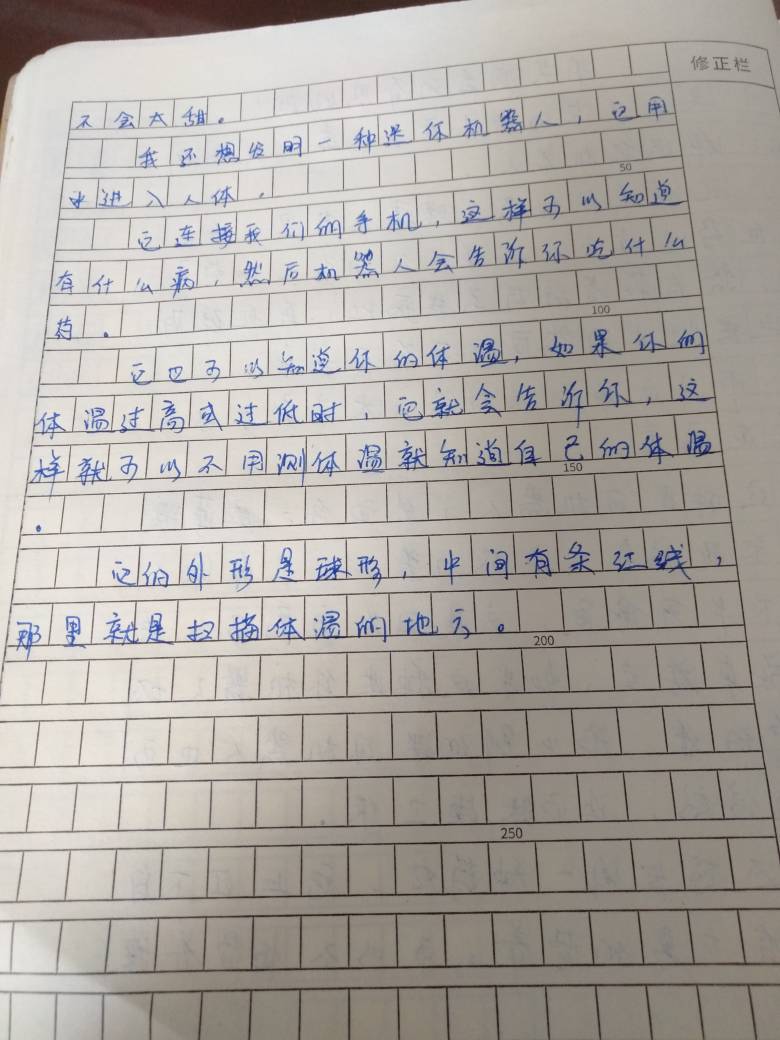 修正栏
不会太甜。
我还想发明一种进体机器人，它用
水进入人体。
50
它连接我们的手机，这样可以知道
有什么病，然后机器人会告诉你吃什么
药。
100
它也可以知道你的体温，如果你的
体温过高或过低时，它就会告诉你，这
样就可以不用测体温就知道自己的体温
150
。
它的外形是球形，中间有条红线，
那里就是扫描体温的地方。
200
250